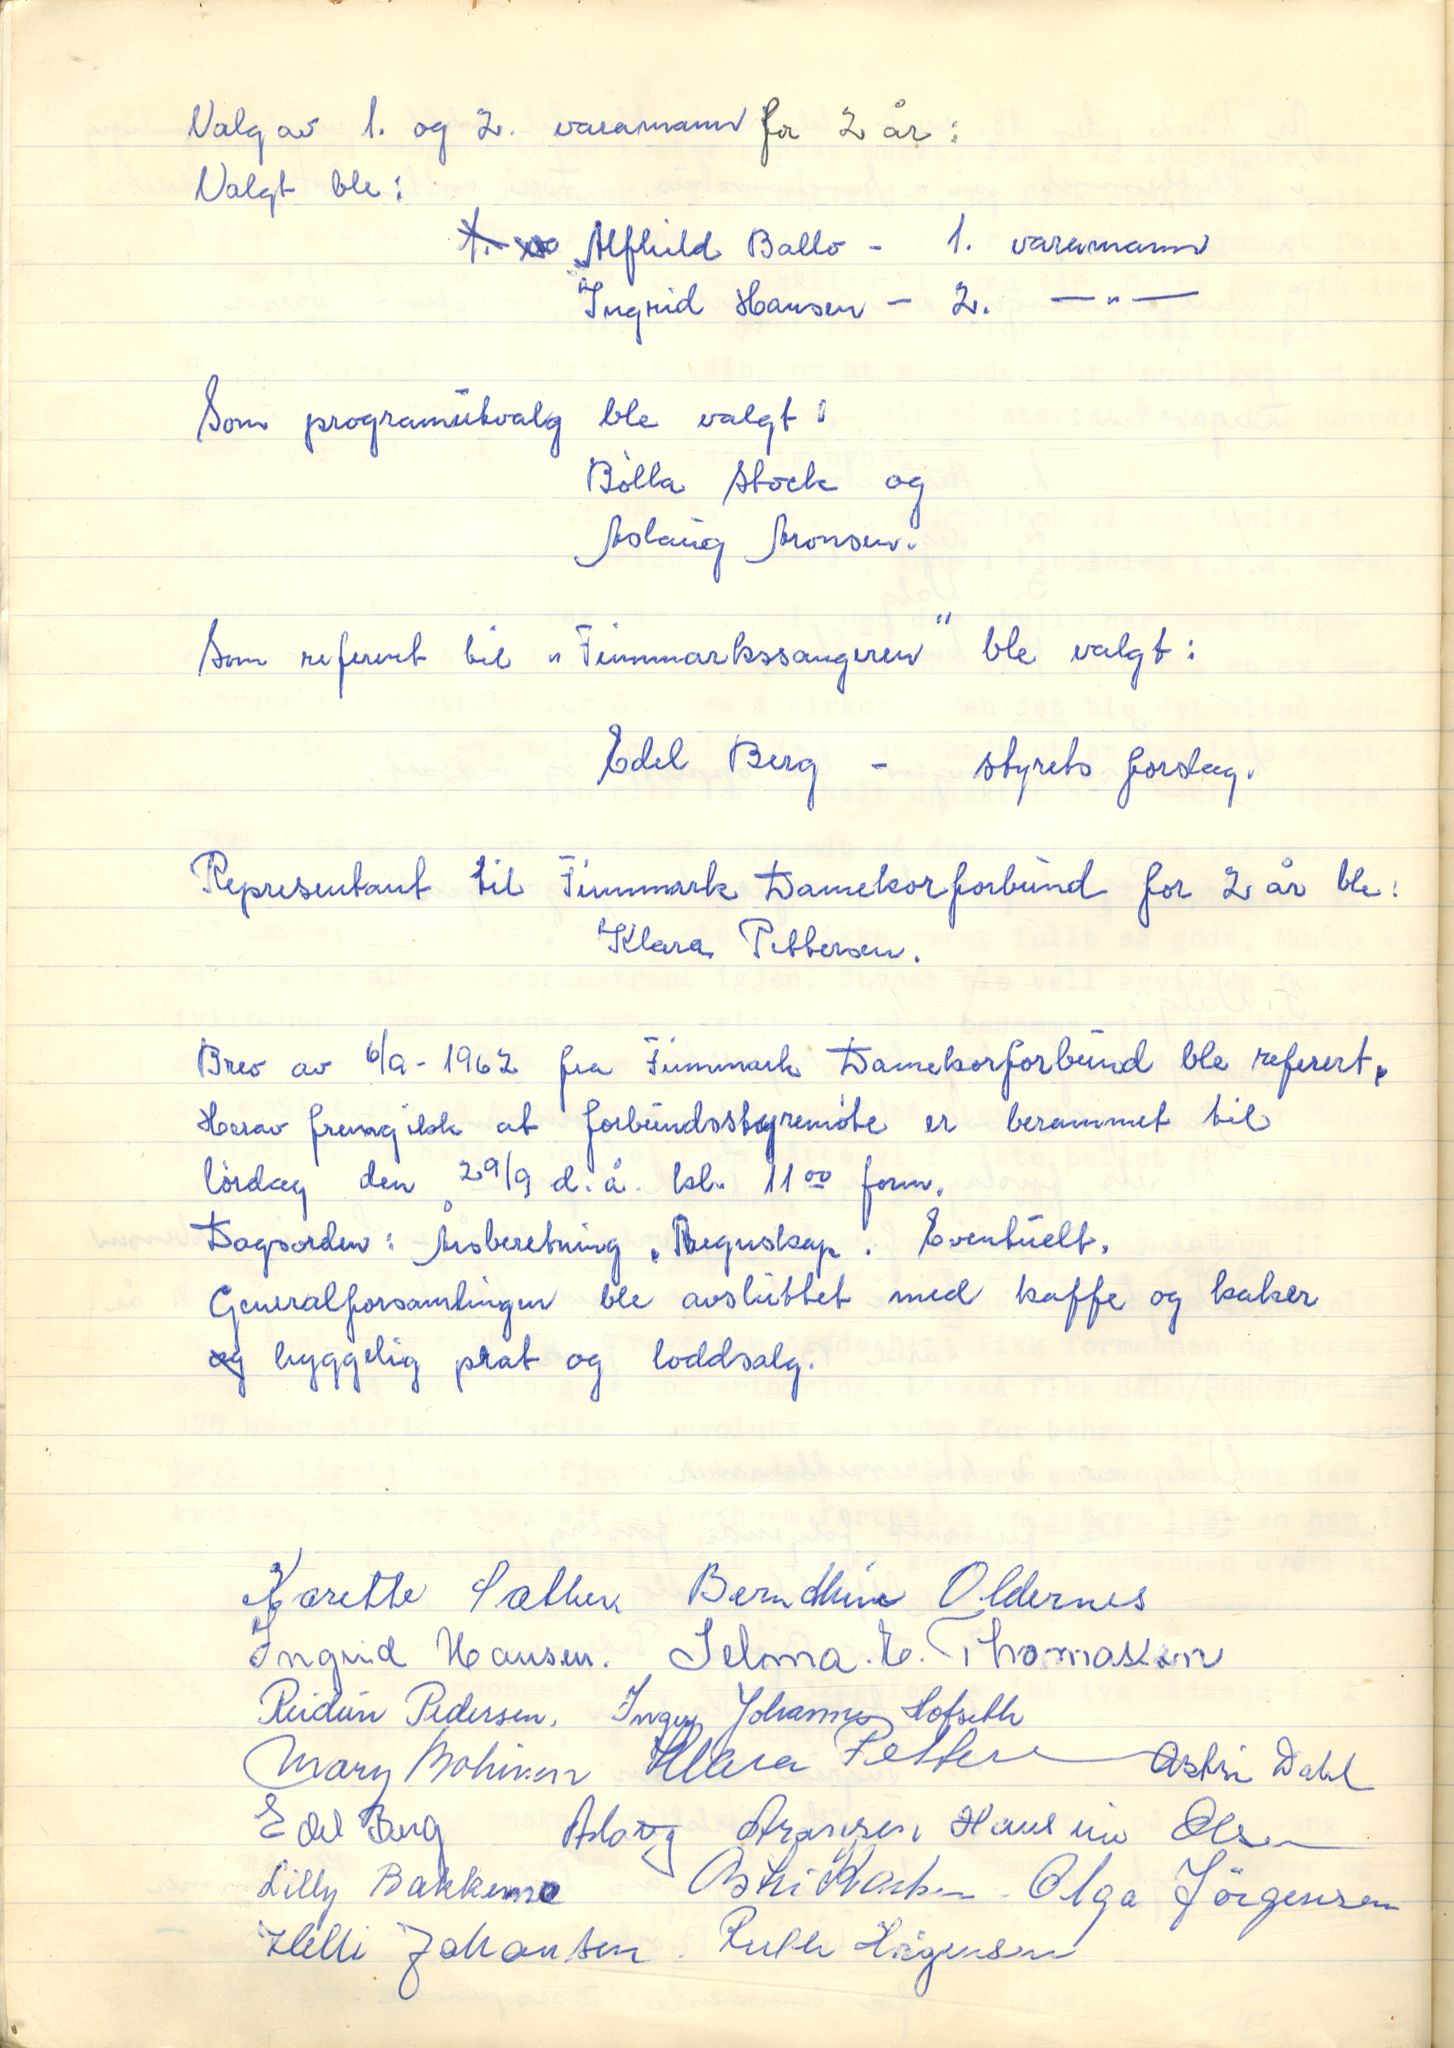 Valg av 1. og 2. varamann for 2 år:
Valgt ble:
Alfhild Ballo - 1. varamann
Ingrid Hansen - 2. —"—
Som programutvalg ble valgt:
Bolla Stock og
Aslaug Aronsen.
Som referent til "Finnmarkssangeren" ble valgt:
Edel Berg - styrets forslag.
Representant til Finnmark Damekorforbund for 2 år ble:
Klara Pettersen.
Brev av 6/9-1962 fra Finnmark Damekorforbund ble referert.
Herav fremgikk at forbundsstyremöte er berammet til
lördag den 29/9 d.å. kl. 11 00 form.
Dagsorden: Årsberetning. Regnskap. Eventuelt.
Generalforsamlingen ble avsluttet med kaffe og kaker
og hyggelig prat og loddsalg.
Karette Sæther Berndthine Oldernes
Ingrid Hansen. Selma. E. Thomassen
Reidun Pedersen. Inger Johanne Hofseth
Mary Klara Petters Astri Dahl
Edel Berg Aslaug Aronsen Hansine Olsen
Lilly Bakkemo Astri Olga Jörgensen
Helli Johansen. Ruth Jörgensen